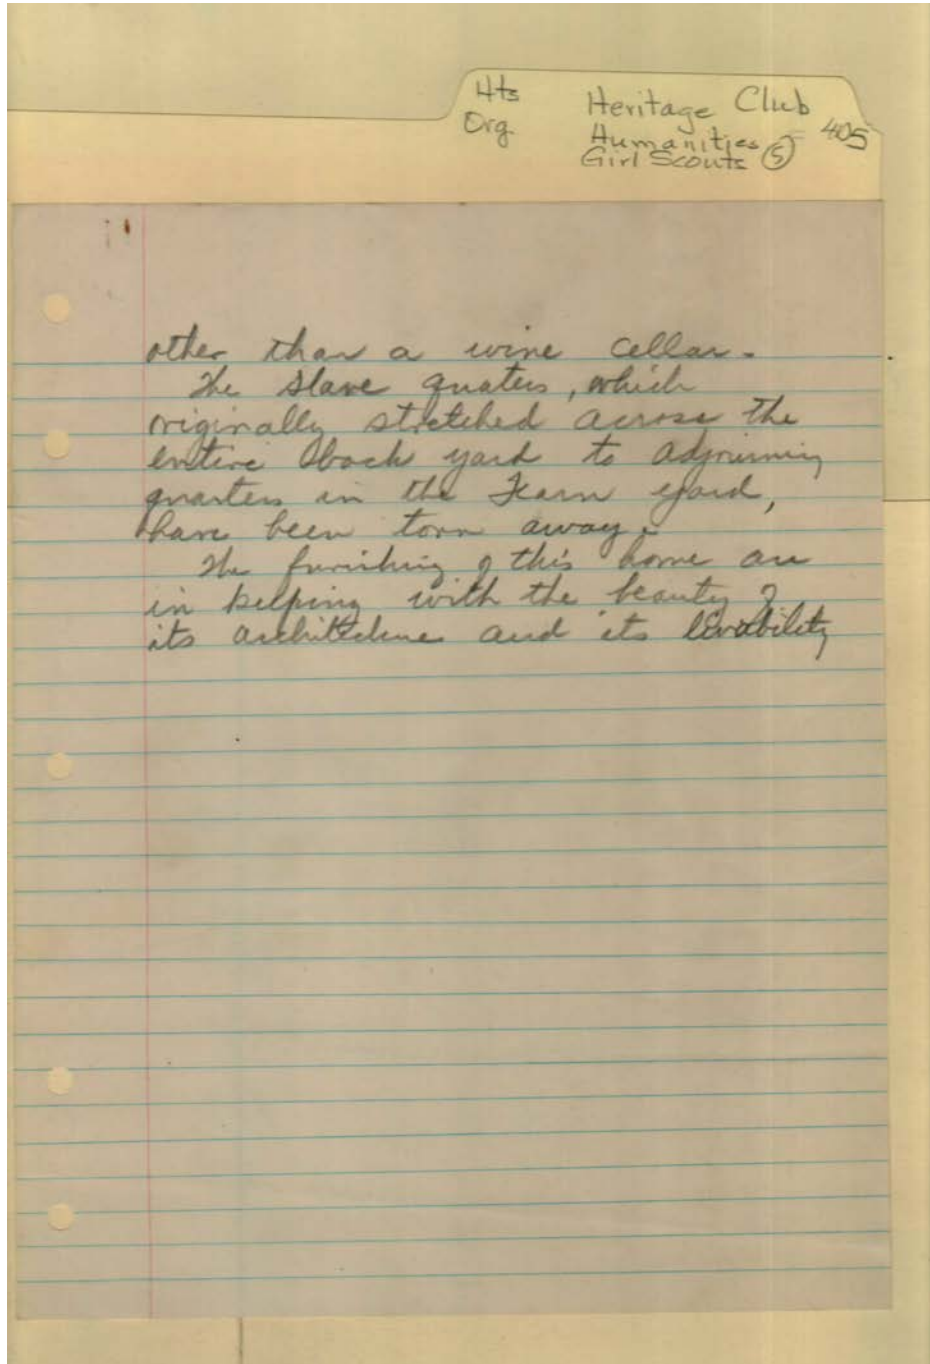 Hts Heritage Club
Org. Humanities 405
Girl Scouts 5
other than a wine cellar.
The slave quaters, which
originally stretched across the
entire back yard to adjoining
quarters in the Fearn yard,
have been torn away.
The furnishing of this home are
in keeping with the beauty of
its architecture and its livability